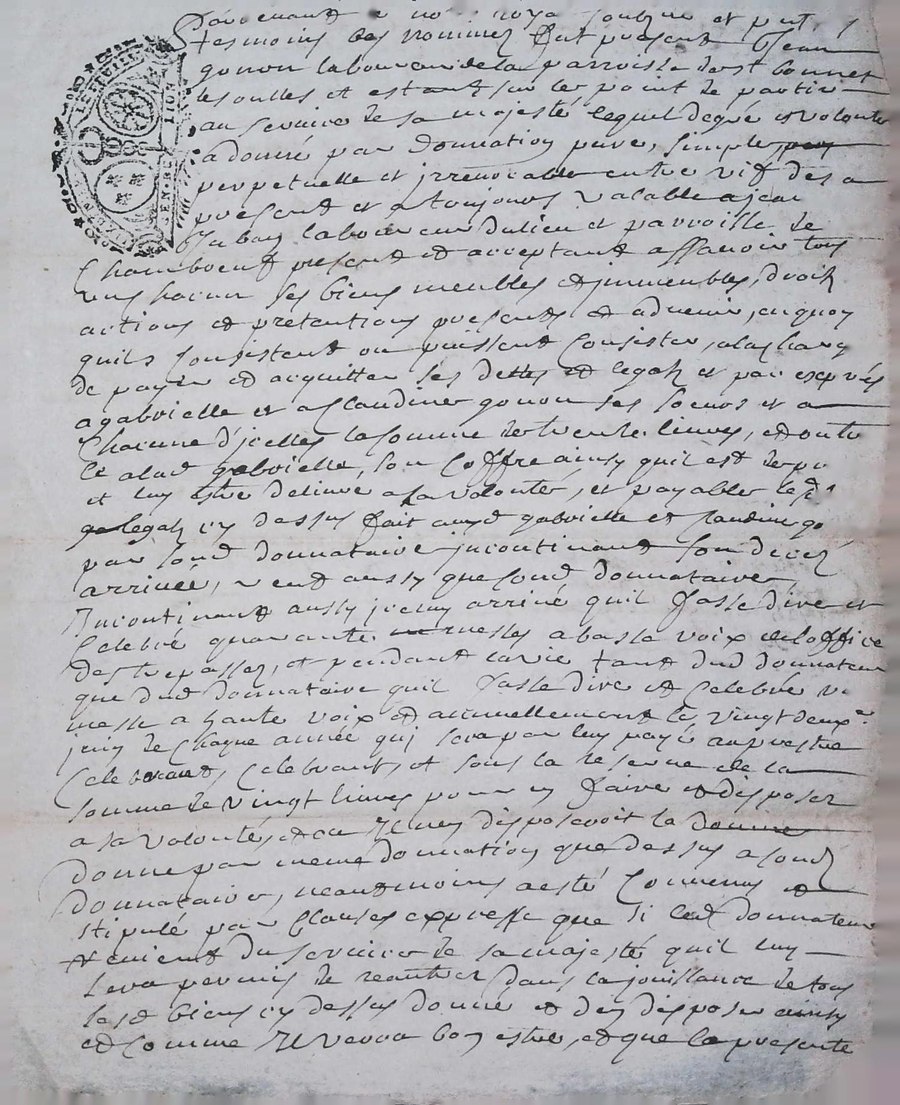 Pardevant le no. royal soubzne et pnt
tesmoins bas nommez fut present Jean
gonon laboureur de la parroisse de st bonnet
les oulles et estant sur les point de partir
au service de sa majesté lequel de gré et volonte
a donné par donnation pure, simple,
perpetuelle et jrrevocable entre vif des a
present et a toujours valable a jean
laboureur du lieu et parroisse de
Chambœuf present et acceptant assavoir tous
uns chacun ses biens meubles et jmmeubles, droitz
actions et pretentions presents et advenir, en quoy
quils consistent ou puissent consister, a la charge
de payer et acquitter ses dettes et legatz et par exprés
a gabrielle et a Claudine gonon ses soeurs et a
Chacune d'jcelles la somme de trente livres, et outre
ce a lad gabrielle, son coffre ainsy quil est
et luy estre delivré a sa volonté, et payable led
legatz cy dessus fait auxd gabrielle et Claudine go
par sond donnataire jncontinant son decez
arrivée, veut aussy que sond donnataire,
Jncontinant aussy jceluy arrivé quil fasse dire et
Celebré quarante messes a basse voix de l'office
des trepassez, et pendant la vie tant dud donnateur
que dud donnataire quil fasse dire et celebrée u
messe a haute voix et annuellement le vingt deuxe
juin de chaque année qui sera par luy payé au prestre
Celebrant, et sous la reserve de la
somme de vingt livres pour en faire et disposer
a sa volonté, et ou Jl n'en disposeroit la
donne par meme donnation que dessus a sond
donnataire, neantmoins a esté convenus et
stipulé par clauses expresse que si led donnateur
revient du service de sa majesté quil luy
sera permis de reantrer dans la jouissance de tous
sesd biens cy dessus donne et d'en disposer ainsy
et comme Jl verra bon estre, et que la presente